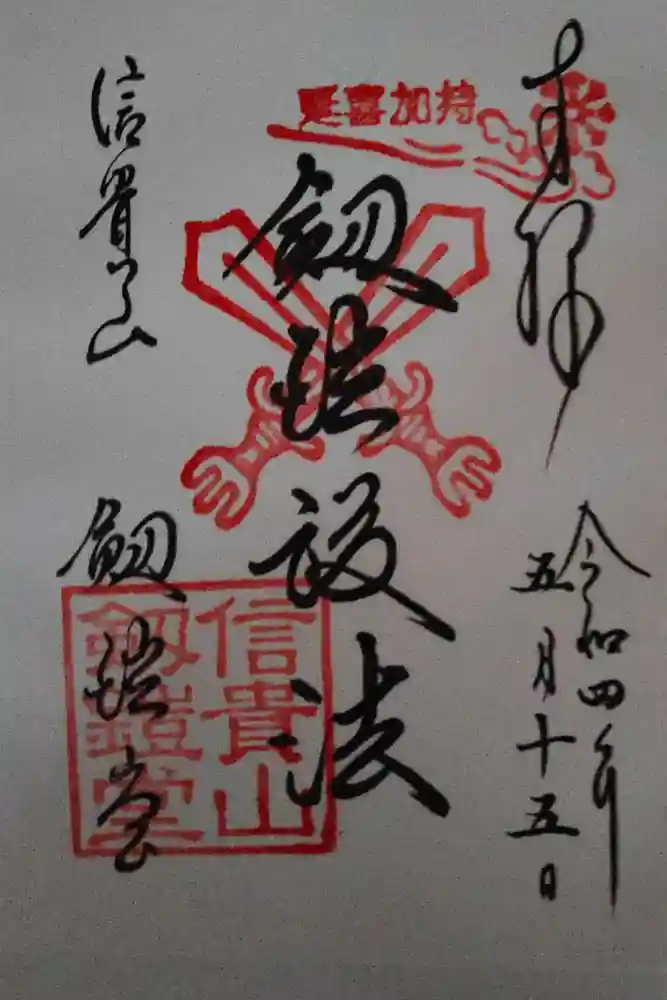 延喜加持
奉拝
令和四年
五月十五日
劔鎧護法
信貴山
劔鎧堂
信貴山
劔鎧堂